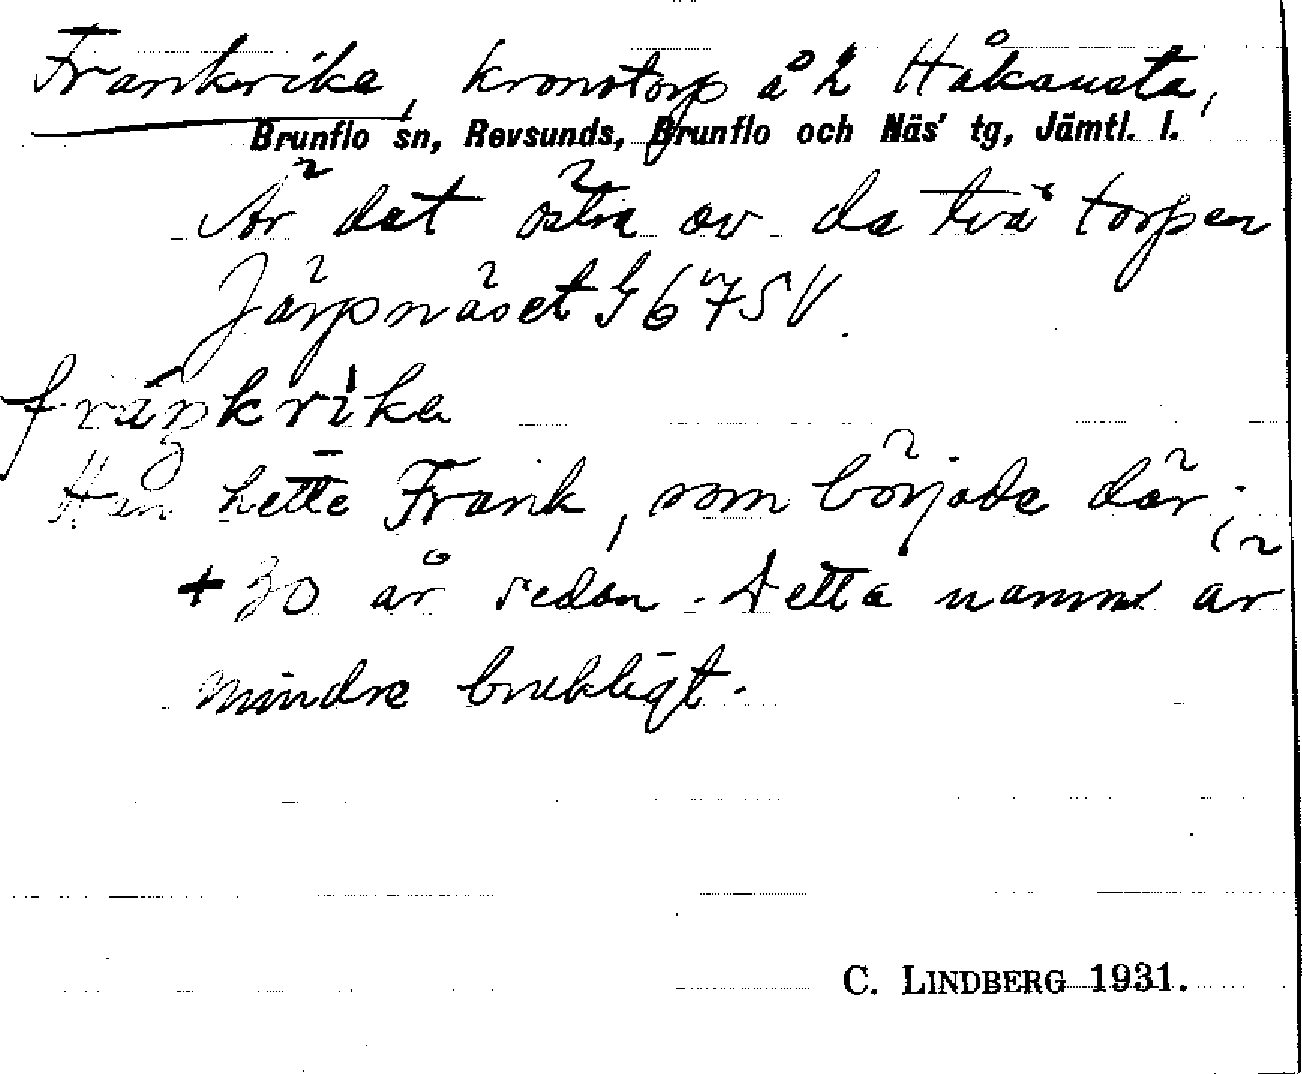 Frankrike, kronotorp å 2 Håkansta,
Brunflo sn, Revsunds, Brunflo och Näs' tg, Jämtl. l.
Är det östra av de två torpen
Järpnäset G675V.
fráŋkrika
Han hette Frank, som började där,
+ 30 år sedan. Detta namn är
mindre brukligt.
C. LINDBERG 1931.